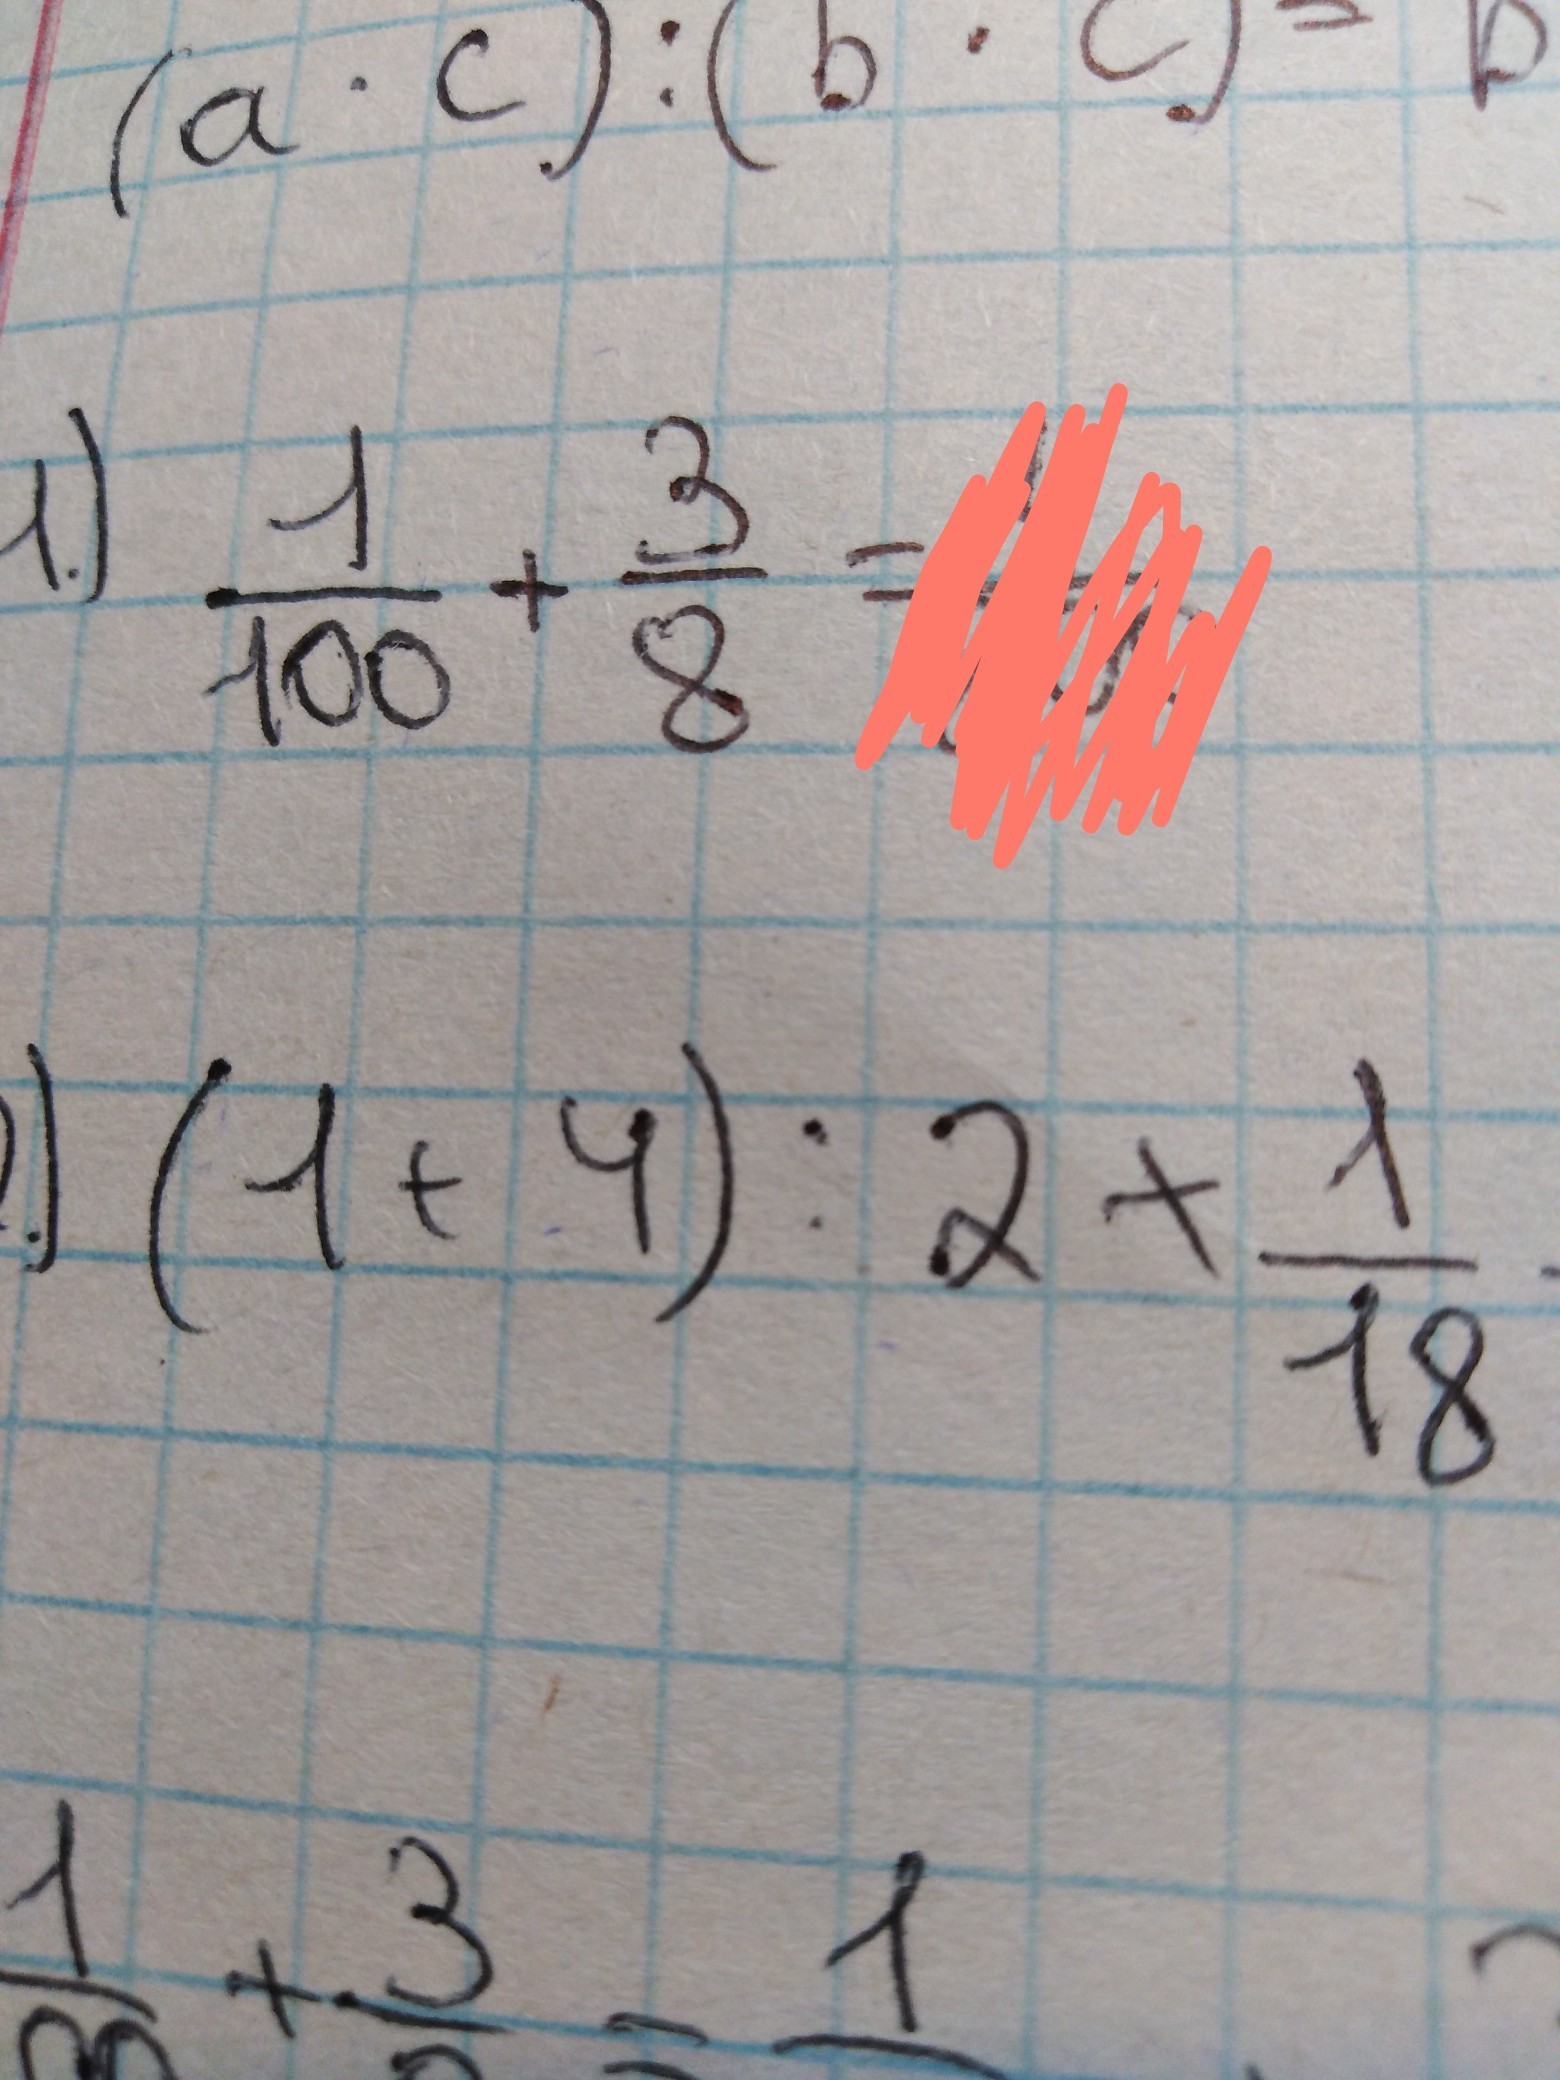 (a · c) : (b · c) = b
1.) 1/100 + 3/8 =
2.) (1 + 4) : 2 + 1/18
1 + 3 = 1